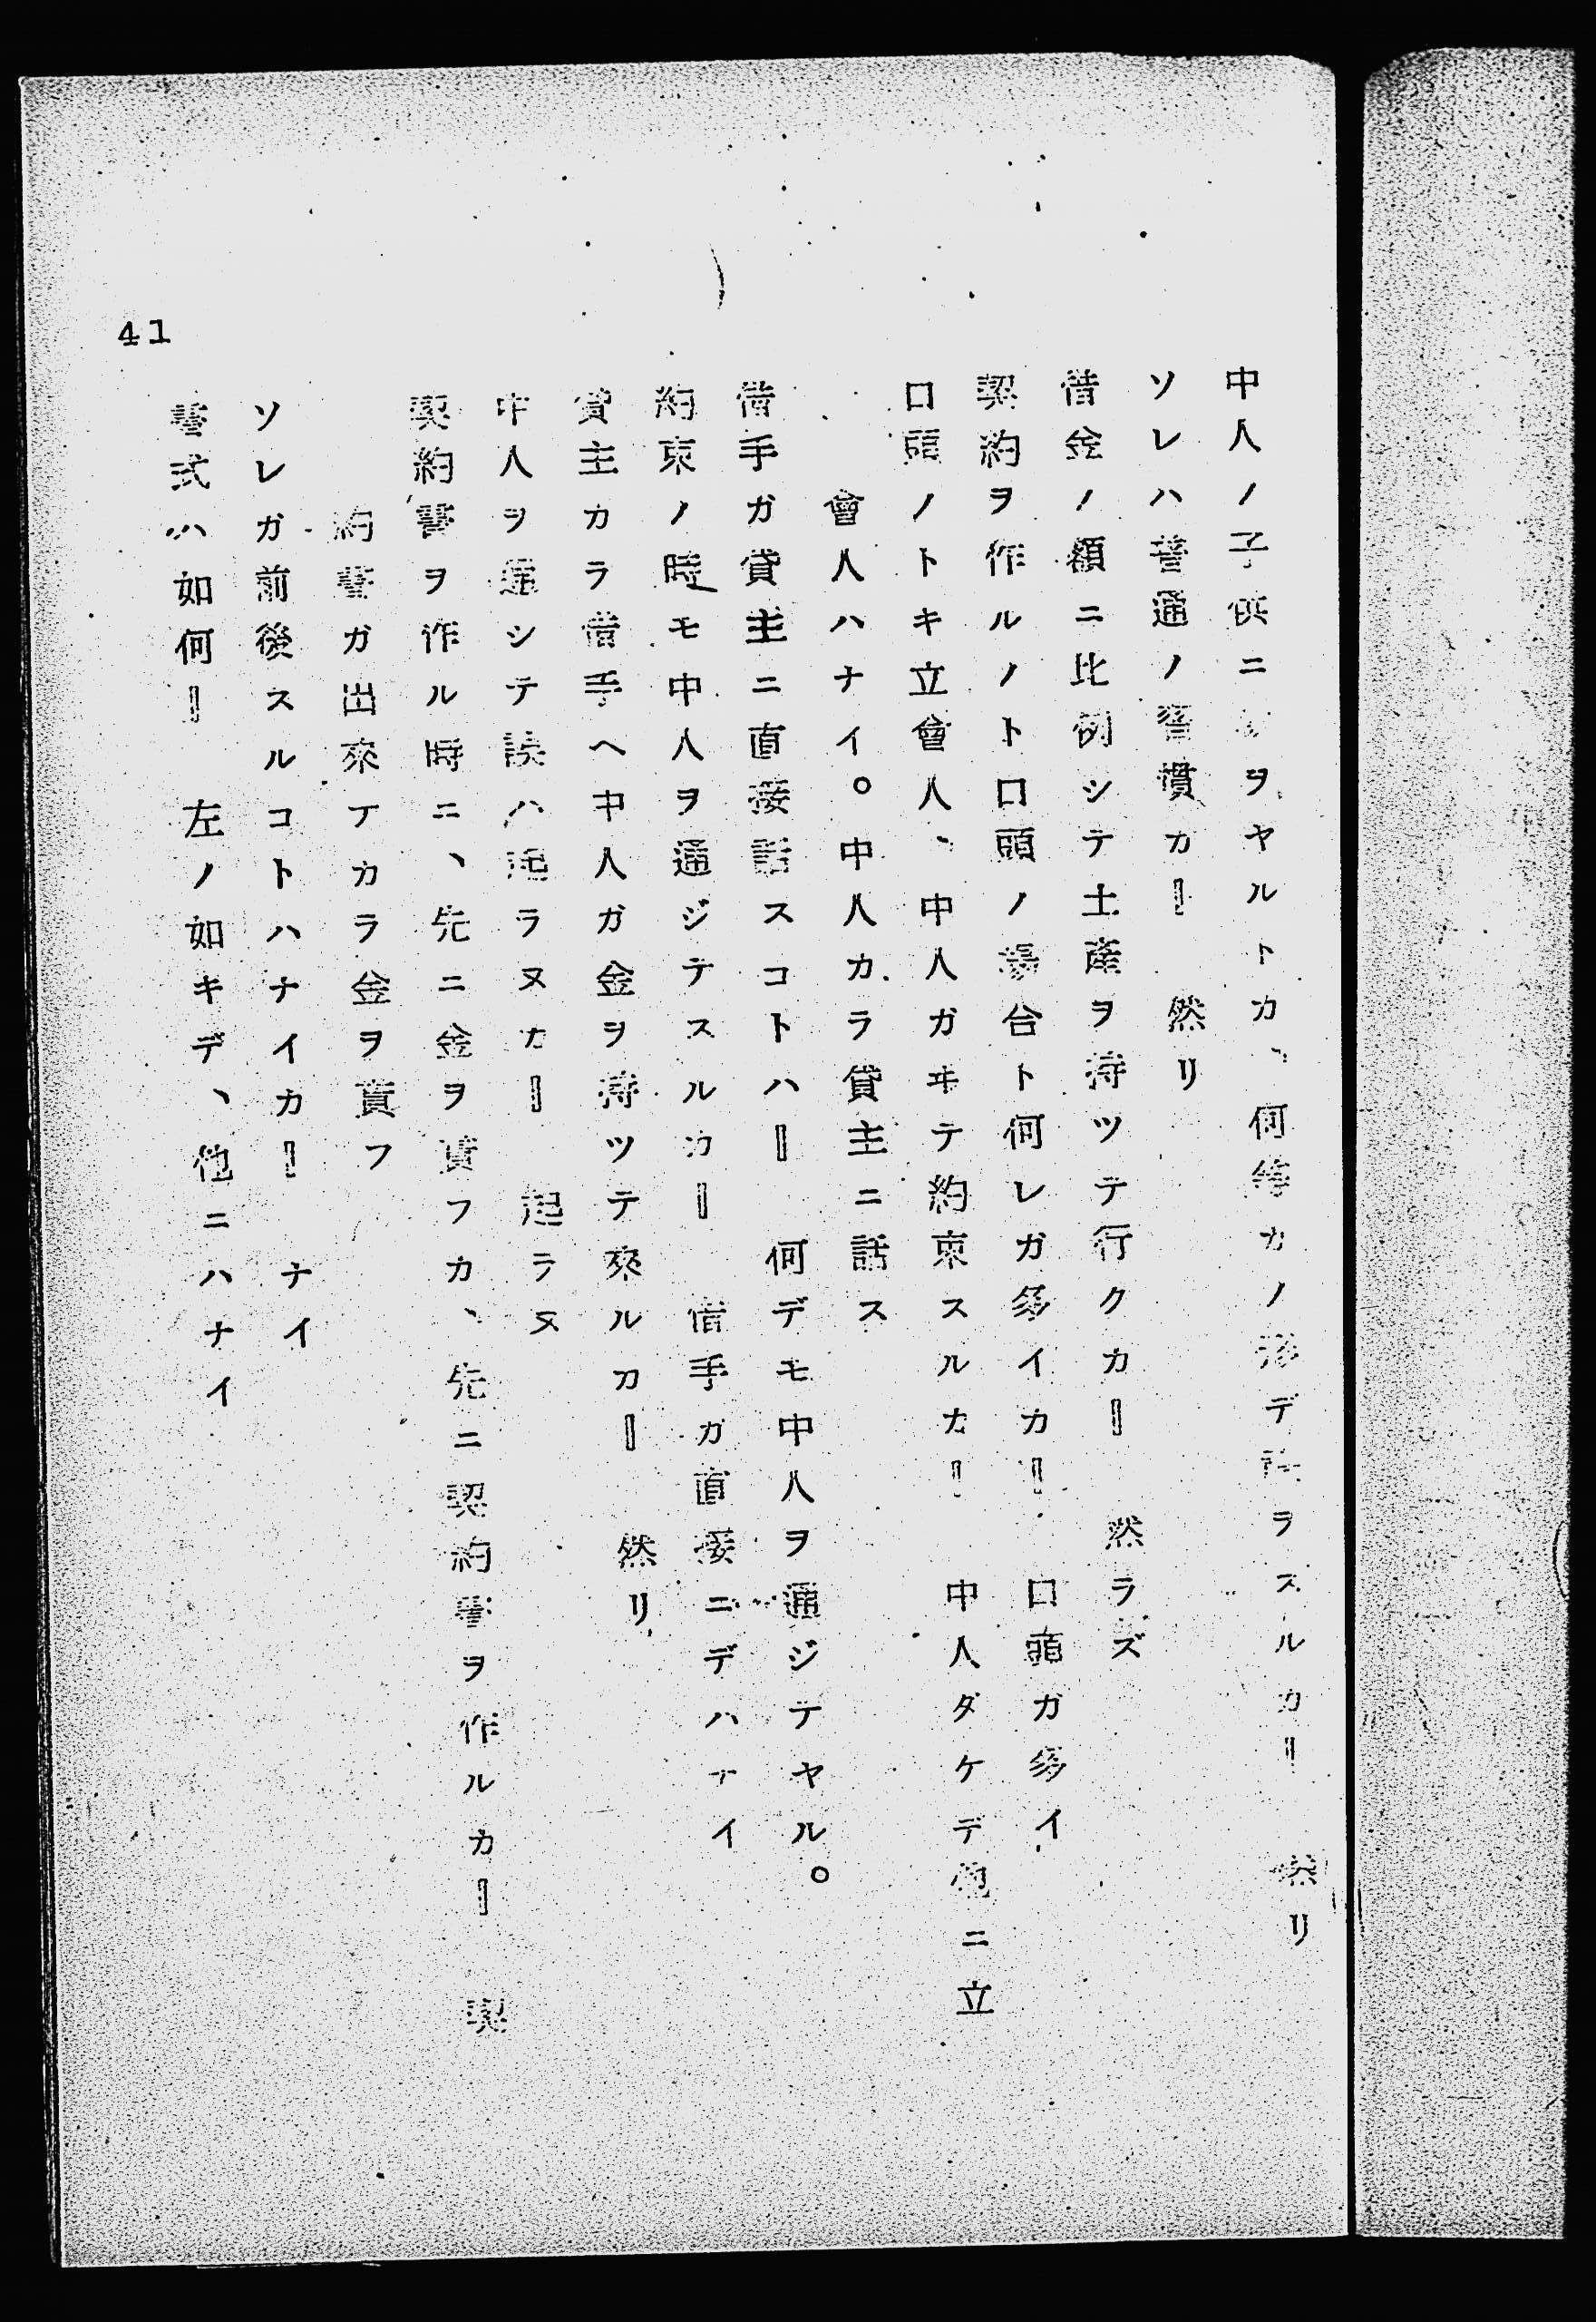 中人ノ子供ニヲヤルトカ、何等カノ形デ禮ヲスルカ＝　然リ
ソレハ普通ノ習慣カ＝　然リ
借金ノ額ニ比例シテ土産ヲ持ツテ行クカ＝　然ラズ
契約ヲ作ルノト口頭ノ場合ト何レガ多イカ＝　口頭ガ多イ
口頭ノトキ立會人、中人ガヰテ約束スルカ＝　中人ダケデ他ニ立
會人ハナイ。中人カラ貸主ニ話ス
借手ガ貸主ニ直接話スコトハ＝　何デモ中人ヲ通ジテヤル。
約束ノ時モ中人ヲ通ジテスルカ＝　借手ガ直接ニデハナイ
貸主カラ借手ヘ中人ガ金ヲ持ツテ來ルカ＝　然リ
中人ヲ通シテ誤ハ起ラヌカ＝　起ラヌ
契約書ヲ作ル時ニ、先ニ金ヲ貰フカ、先ニ契約書ヲ作ルカ＝　契
約書ガ出來テカラ金ヲ貰フ
ソレガ前後スルコトハナイカ＝　ナイ
書式ハ如何＝　左ノ如キデ、他ニハナイ
41